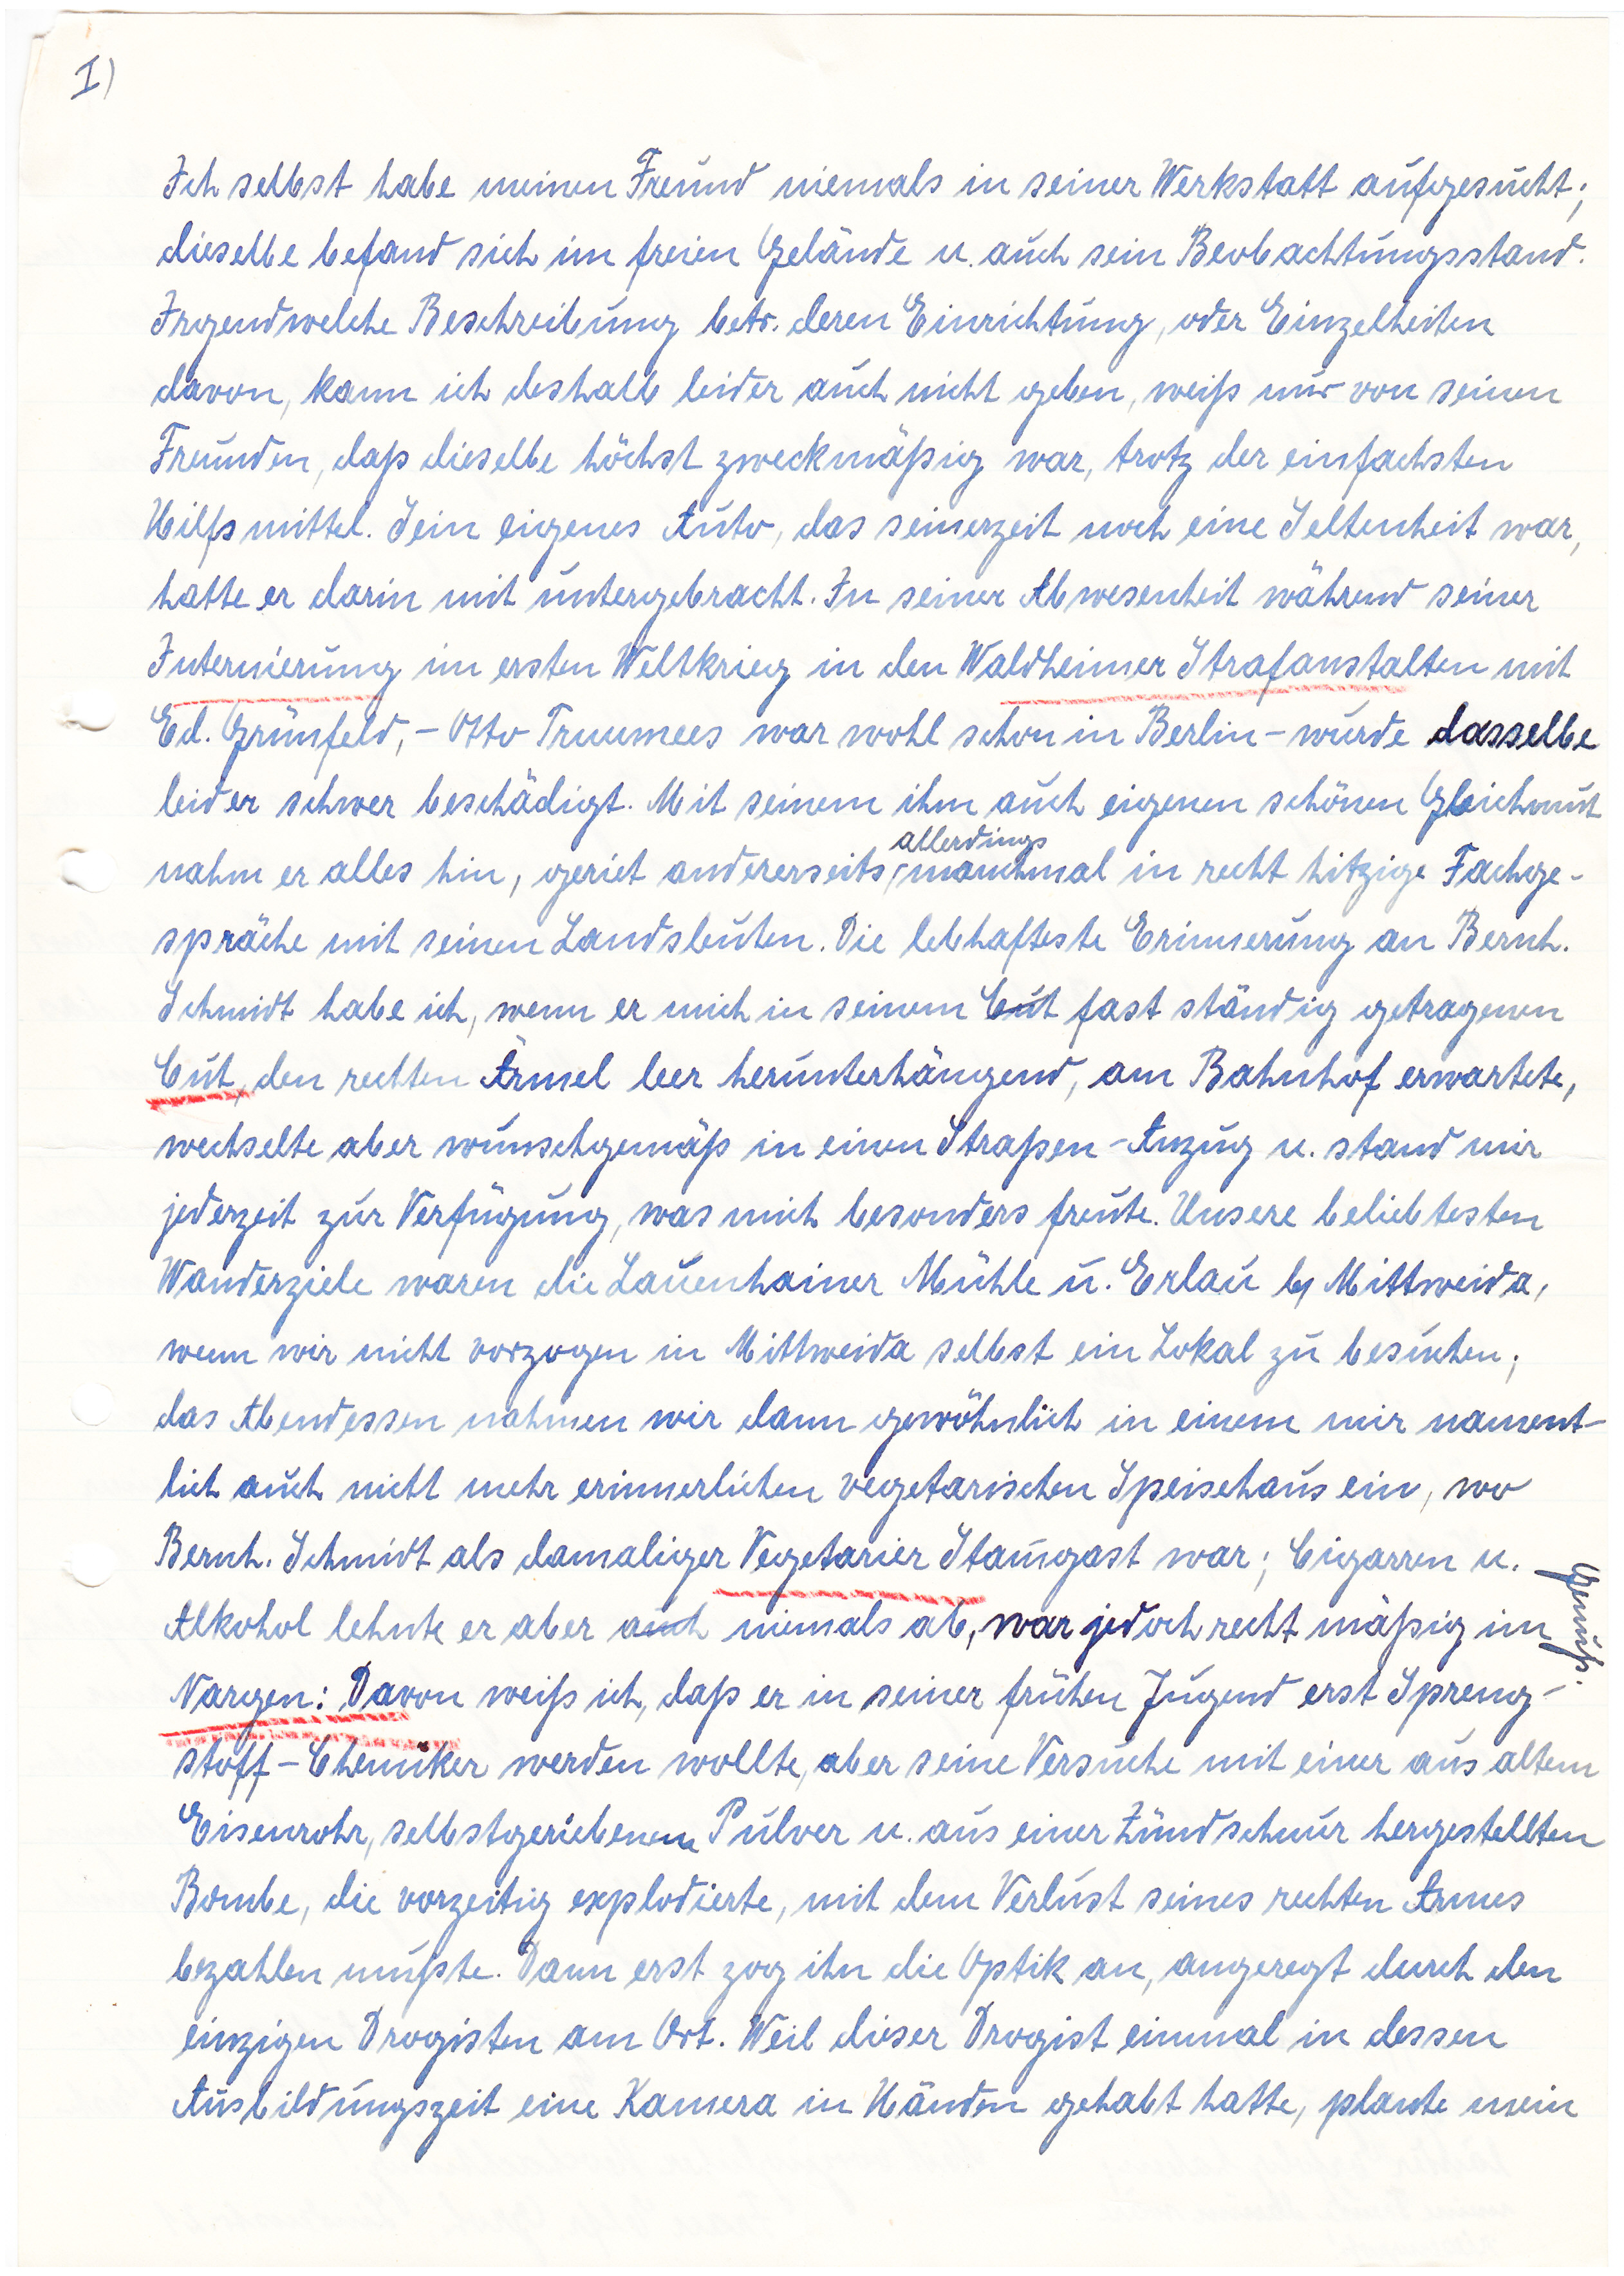 I)
Ich selbst habe meinen Freund niemals in seiner Werkstatt aufgesucht;
dieselbe befand sich im freien Gelände u. auch sein Beobachtungsstand.
Irgendwelche Beschreibung betr. deren Einrichtung, oder Einzelheiten
davon, kann ich deshalb leider auch nicht geben, weiß nur von seinen
Freunden, daß dieselbe höchst zweckmäßig war, trotz der einfachsten
Hilfsmittel. Sein eigenes Auto, das seinerzeit noch eine Seltenheit war,
hatte er darin mit untergebracht. In seiner Abwesenheit während seiner
Internierung im ersten Weltkrieg in den Waldheimer Strafanstalten mit
Ed. Grünfeld, – Otto Truumees war wohl schon in Berlin – wurde dasselbe
leider schwer beschädigt. Mit seinem ihm auch eigenen schönen Gleichmut
nahm er alles hin, geriet andererseits, allerdings manchmal in recht hitzige Fachge-
spräche mit seinen Landsleuten. Die lebhafteste Erinnerung an Bernh.
Schmidt habe ich, wenn er mich in seinem Cut fast ständig getragenen
Cut, den rechten Ärmel leer herunterhängend, am Bahnhof erwartete,
wechselte aber wunschgemäß in einen Straßen-Anzug u. stand mir
jederzeit zur Verfügung, was mich besonders freute. Unsere beliebtesten
Wanderziele waren die Lauenhainer Mühle u. Erlau b/ Mittweida,
wenn wir nicht vorzogen in Mittweida selbst ein Lokal zu besuchen;
das Abendessen nahmen wir dann gewöhnlich in einem mir nament-
lich auch nicht mehr erinnerlichen vegetarischen Speisehaus ein, wo
Bernh. Schmidt als damaliger Vegetarier Stam̄gast war; Cigarren u.
Alkohol lehnte er aber auch niemals ab, war jedoch recht mäßig im Genuß.
Nargen: Davon weiß ich, daß er in seiner frühen Jugend erst Spreng-
stoff-Chemiker werden wollte, aber seine Versuche mit einer aus altem
Eisenrohr, selbstgeriebenem Pulver u. aus einer Zündschnur hergestellten
Bombe, die vorzeitig explodierte, mit dem Verlust seines rechten Armes
bezahlen mußte. Dann erst zog ihn die Optik an, angeregt durch den
einzigen Drogisten am Ort. Weil dieser Drogist einmal in dessen
Ausbildungszeit eine Kamera in Händen gehabt hatte, plante mein